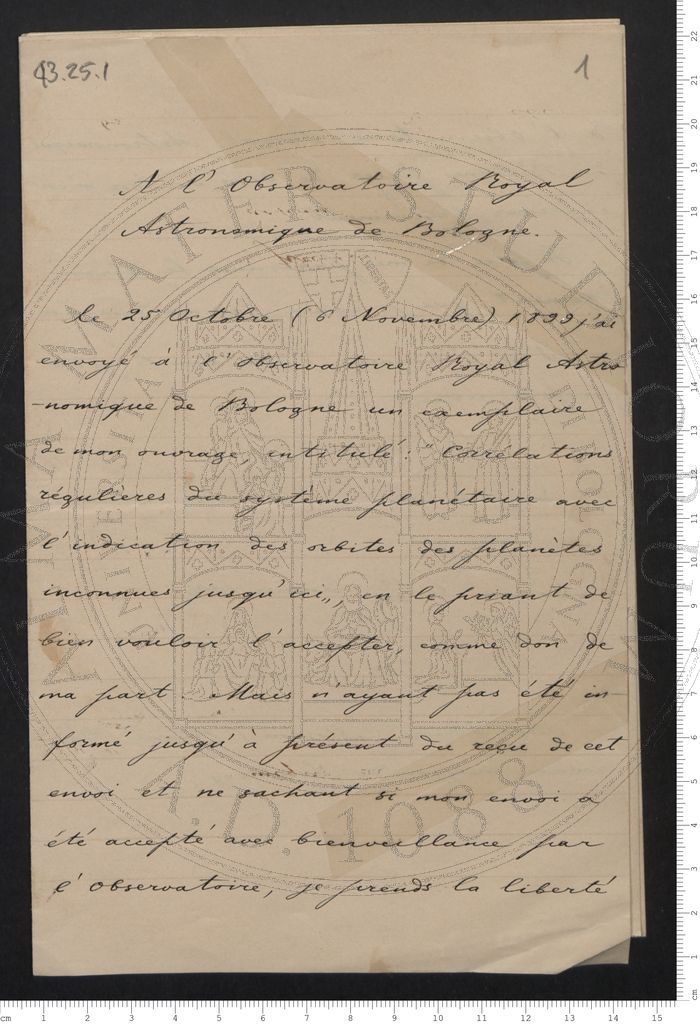 43.25.1
1
A l'Observatoire Royal
Astronomique de Bologne.
le 25 Octobre (6 Novembre) 1899 j'ai
envoyé à l'Observatoire Royal Astro
-nomique de Bologne un exemplaire
de mon ouvrage, intitulé: "Corrélations
régulières du système planétaire avec
l'indication des orbites des planètes
inconnues jusqu'ici„, en le priant de
bien vouloir l'accepter, comme don de
ma part. Mais n'ayant pas été in-
formé jusqu'à présent du reçu de cet
envoi et ne sachant si mon envoi a
été accepté avec bienveillance par
l'Observatoire, je prends la liberté
A.D. 1088